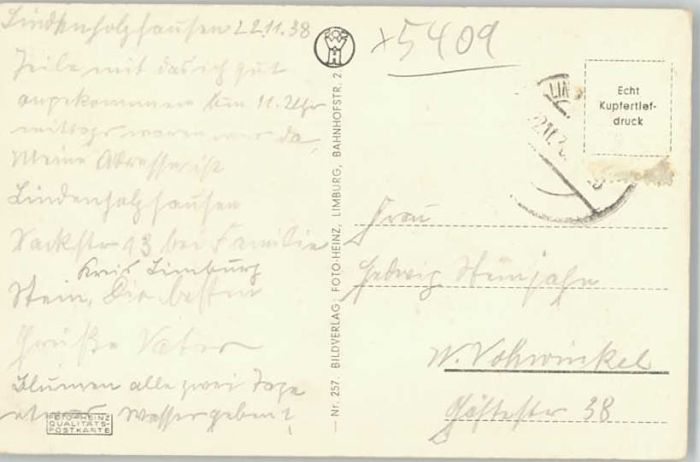 Lindenholzhausen 22.11.38
Teile mit das ich gut
angekommen bin 11. Uhr
mittags waren wir da,
Meine Adresse ist
Lindenholzhausen
13 bei Familie
Kreis Limburg
Stein, Die besten
Grüße Vater
Blumen alle zwei Tage
etwas Wasser geben!
FOTO-HEINZ
QUALITÄTS-
POSTKARTE
Nr. 257. BILDVERLAG: FOTO-HEINZ, LIMBURG, BAHNHOFSTR. 2
x5409
LIN
Echt
Kupfertief-
druck
Frau
Hedwig Steinjahn
W. Vohwinkel
38